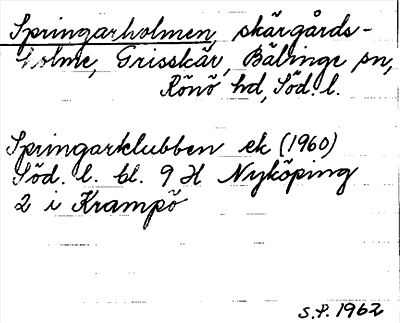 Springarholmen, skärgårds-
holme, Grisskär, Bälinge sn,
Rönö hd, Söd. l.
Springarklubben ek (1960)
Söd. l. bl. 9 H Nyköping
2 i Krampö
S.P. 1962